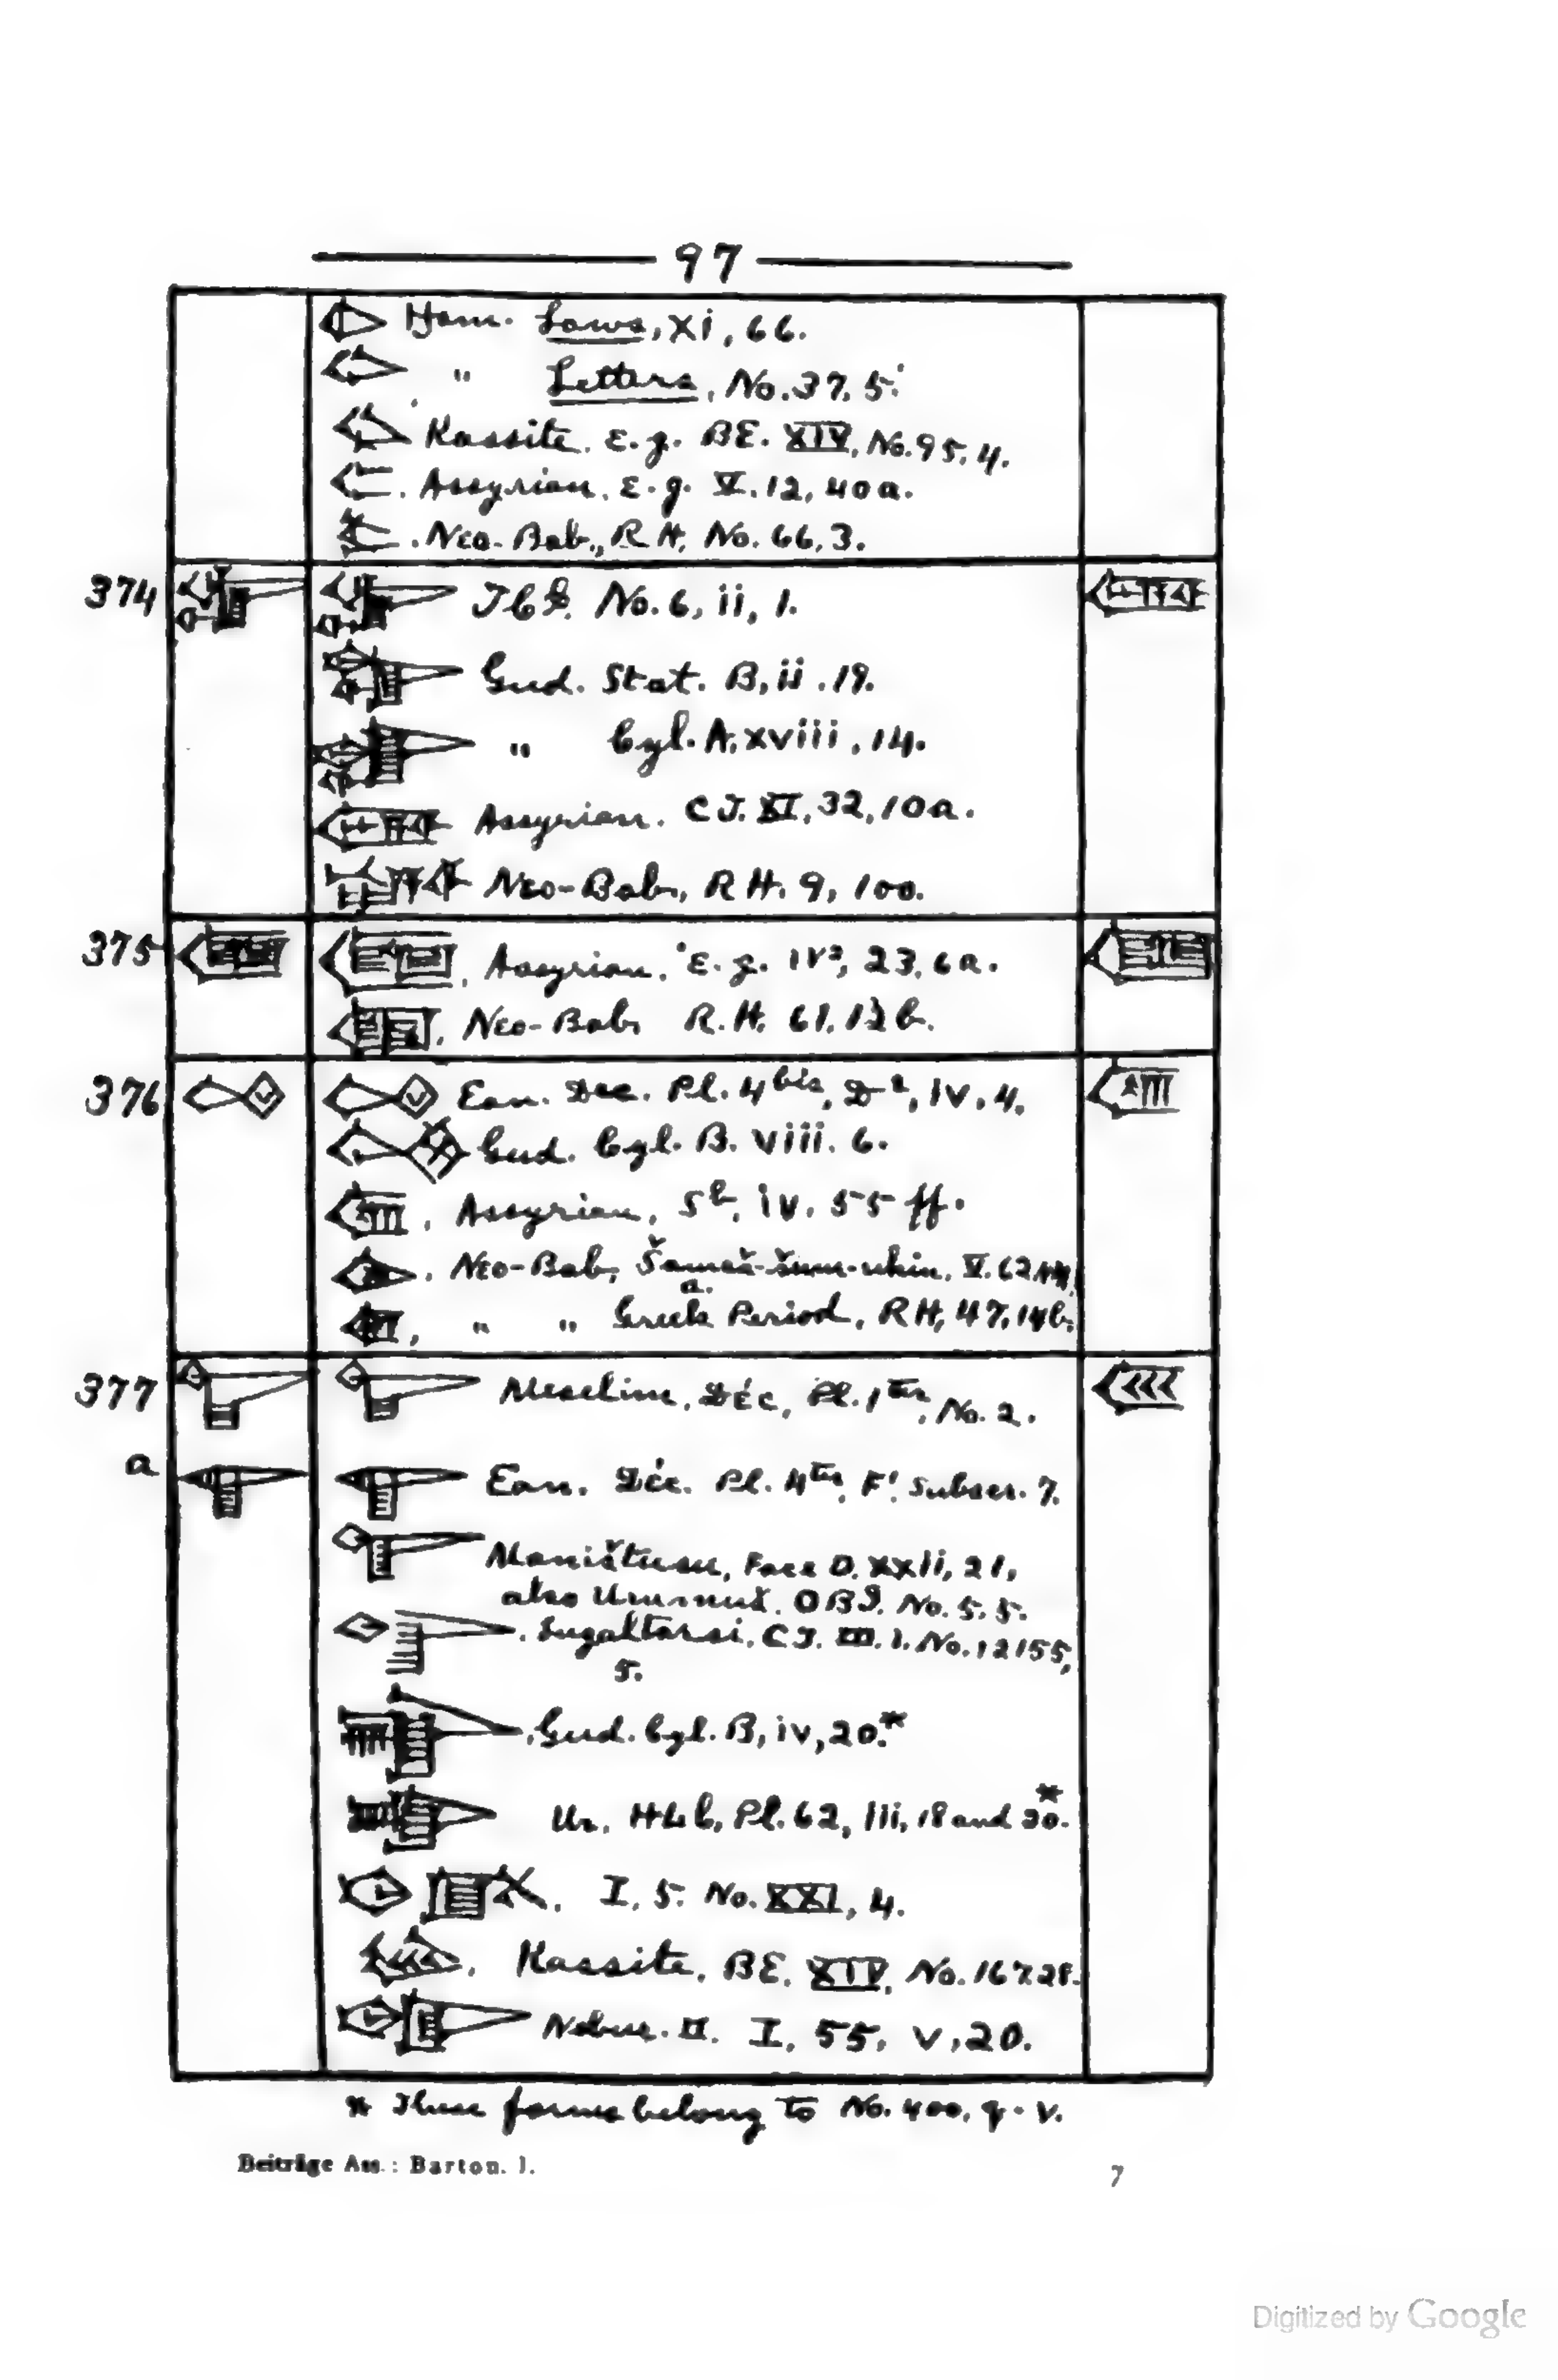 97
Ham. Laws, xi, 66.
" Letters, No. 37, 5.
Kassite. E.g. BE. XIV, No. 95, 4.
Assyrian. E.g. V. 12, 40a.
Neo-Bab., RH. No. 66, 3.
374 No. 6, ii, 1.
Gud. Stat. B, ii. 19.
" Cyl. A. xviii, 14.
Assyrian. CT. XI, 32, 10a.
Neo-Bab., RH. 9, 100.
375 Assyrian. E.g. IV², 23, 6a.
Neo-Bab. R.H. 61.
376 Ean. Déc. Pl. 4 bis, D², IV, 4.
Gud. Cyl. B. viii. 6.
Assyrian, Sb, iv. 55 ff.
Neo-Bab., Šamaš-šum-ukin, V. 62
" " Greek Period, RH, 47, 14b.
377 Meselim, Déc, Pl. 1 ter, No. 2.
a Ean. Déc. Pl. 4 ter, F¹ Subscr. 7.
Maništusu, Face D. xxii, 21,
also Urumuš. OBI. No. 5, 5.
Lugaltarsi, CT. III. 1. No. 12155,
5.
Gud. Cyl. B, iv, 20.*
Ur. HLC, Pl. 62, iii, 18 and 20.*
I, 5. No. XXI, 4.
Kassite, BE. XIV, No. 167.28.
Nebuc. II. I, 55, v, 20.
* These forms belong to No. 400, q. v.
Beiträge Ass.: Barton. I.
7
Digitized by Google